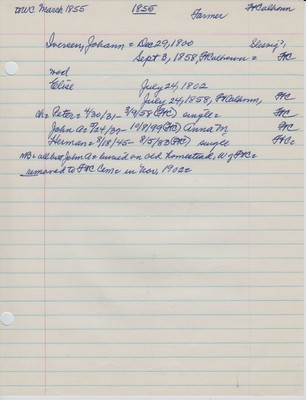 to WC March 1855 1855 Farmer Ft Calhoun
Iversen, Johann = Dec 29, 1800
Sept 3, 1858, Ft Calhoun = FtC
wod
Elise July 24, 1802
July 24, 1858, Ft Calhoun, FtC
Ch = Peter = 4/30/31 - 3/9/58 (FtC) single =
John A = 7/24/37 - 10/8/99 (FtC) Anna M FtC
Herman = 9/18/45 - 8/5/83 (FtC) single FtC
NB = all but John A = buried on old homestead, W of FtC =
removed to FtC Cem = in Nov, 1902 =